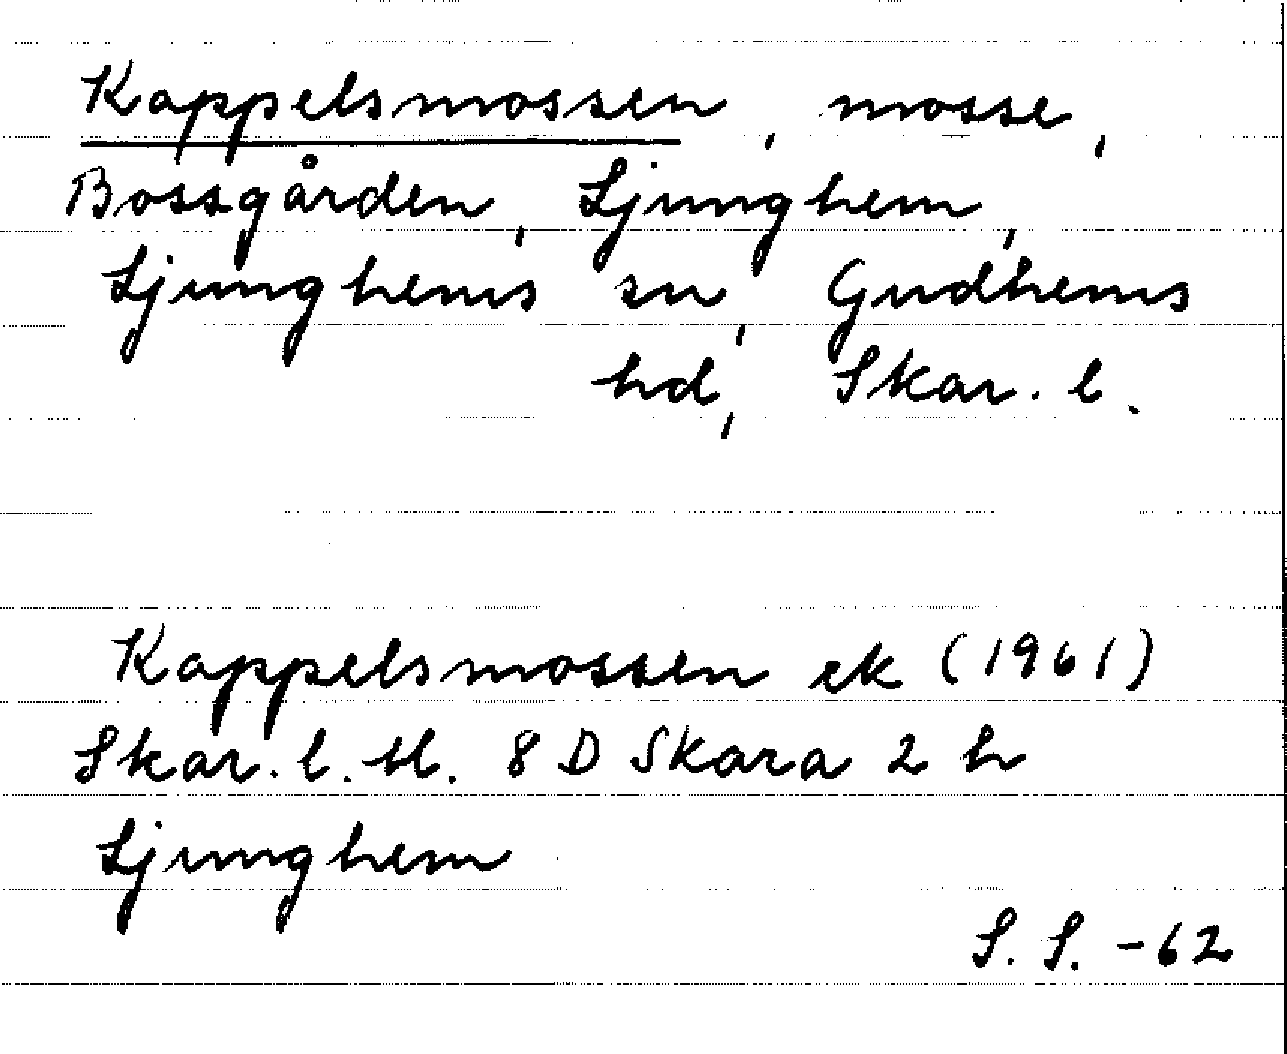 Kappelsmossen, mosse,
Bossgården, Ljunghem,
Ljunghems sn, Gudhems
hd, Skar. l.
Kappelsmossen ek (1961)
Skar. l. bl. 8 D Skara 2 h
Ljunghem
S. S. -62